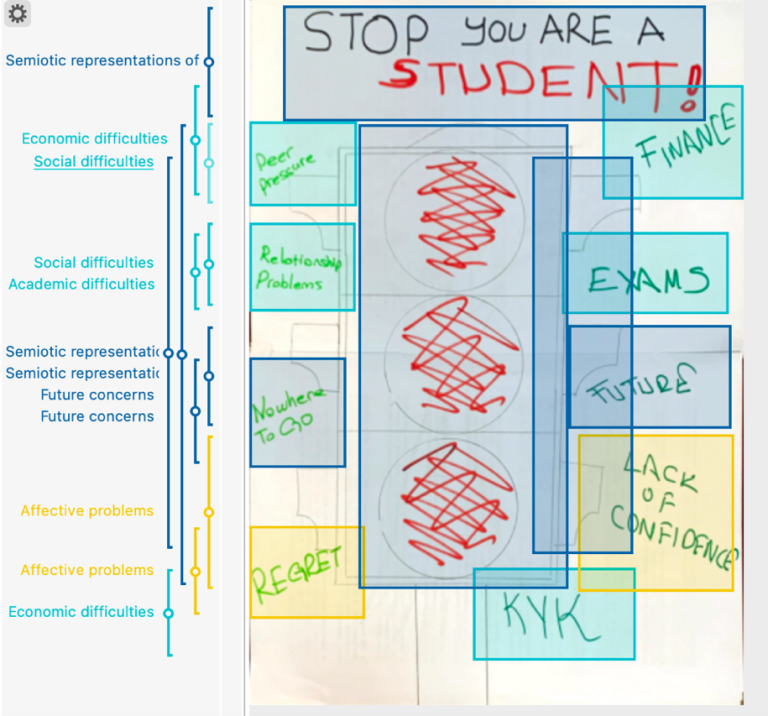 STOP YOU ARE A
STUDENT!
Semiotic representations of
Economic difficulties
Social difficulties
Social difficulties
Academic difficulties
Semiotic representatio
Semiotic representatio
Future concerns
Future concerns
Affective problems
Affective problems
Economic difficulties
Peer
Pressure
FINANCE
Relationship
Problems
EXAMS
Nowhere
To GO
FUTURE
LACK
OF
CONFIDENCE
REGRET
KYK